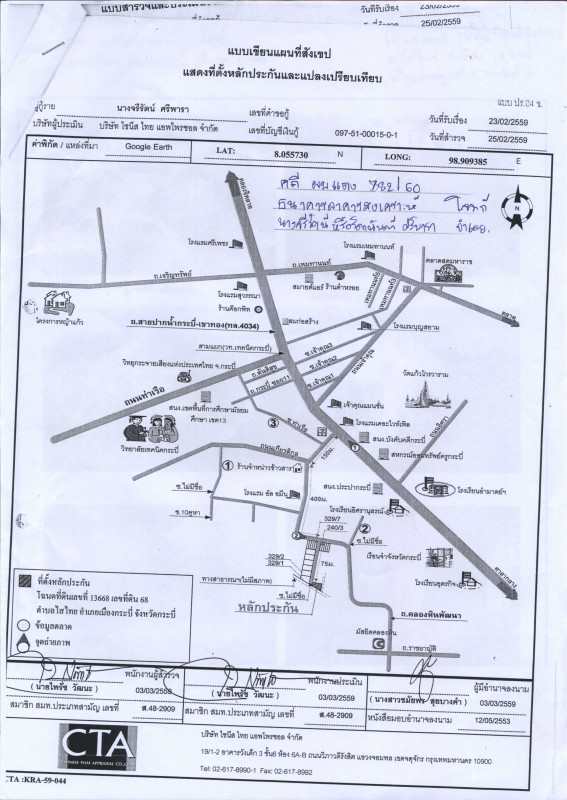 แบบสำรวจและประเมิน
วันที่รับเรื่อง
วันที่สำรวจ 25/02/2559
แบบเขียนแผนที่สังเขป
แสดงที่ตั้งหลักประกันและแปลงเปรียบเทียบ
แบบ ปร.04 ข.
ผู้กู้ราย นางจรีรัตน์ ศรีพารา เลขที่คำขอกู้ วันที่รับเรื่อง 23/02/2559
บริษัทผู้ประเมิน บริษัท ไชนีส ไทย แอพไพรซอล จำกัด เลขที่บัญชีเงินกู้ 097-51-00015-0-1 วันที่สำรวจ 25/02/2559
ค่าพิกัด / แหล่งที่มา Google Earth LAT: 8.055730 N LONG: 98.909385 E
คดี ผบ แดง 722/60
ธนาคารอาคารสงเคราะห์ โจทก์
จำเลย.
N
คลองจิหลาด
โรงแรมศรีเพชร
โรงแรมเหมทานนท์
ตลาดสดมหาราช
ถ.เหมทานนท์
ถ.เจริญทรัพย์
โรงแรมสุวรรณา
สมายด์แอร์
ร้านตำหรอย
เหมทานนท์1
โครงการหญ้าแก้ว
ร้านด๊อกพิท
ถ.สายปากน้ำกระบี่-เขาทอง(ทล.4034)
สมก่อสร้าง
โรงแรมบุญสยาม
ตลาด
สามแยก(วท.เทคนิคกระบี่)
ซ.เจ้าคุณ3
วิทยุกระจายเสียงแห่งประเทศไทย จ.กระบี่
ถ.ตันติสุข
ซ.เจ้าคุณ2
ถนนเจ้าคุณ
วัดแก้วโกรวาราม
ถ.กระบี่ ซอย11
ซ.เจ้าคุณ1
ถนนท่าเรือ
สนง.เขตพื้นที่การศึกษามัธยมศึกษา เขต13
เจ้าคุณแมนชั่น
3
ซ.ท่าเรือ
โรงแรมเดอะไวท์เพิล
สนง.บังคับคดีกระบี่
วิทยาลัยเทคนิคกระบี่
ถนนเกียรติกุล
1
สหกรณ์ออมทรัพย์ครูกระบี่
1
ร้านจำหน่วยข้าวสาร
150ม.
สนง.ประปากระบี่
โรงเรียนอำมาตย์ฯ
ซ.ไม่มีชื่อ
โรงแรม อัล จมีน
400ม.
โรงเรียนอิศรานุสรณ์
ซ.10คูหา
329/7
240/3
2
2
ซ.ไม่มีชื่อ
329/2
329/1
75ม.
เรือนจำจังหวัดกระบี่
ทางสาธารณะฯ(ไม่มีสภาพ)
ซ.ไม่มีชื่อ
โรงเรียนธุรกิจ
ศาลากลาง
หลักประกัน
ที่ตั้งหลักประกัน
โฉนดที่ดินเลขที่ 13668 เลขที่ดิน 68
ตำบลไสไทย อำเภอเมืองกระบี่ จังหวัดกระบี่
ข้อมูลตลาด
จุดถ่ายภาพ
ถ.คลองหินพัฒนา
มัสยิดคลองหิน
ถ.ราชญาติ
พนักงานผู้สำรวจ พนักงานประเมิน ผู้มีอำนาจลงนาม
( นายไพรัช วัฒนะ ) 03/03/2559 ( นายไพรัช วัฒนะ ) 03/03/2559 03/03/2559
สมาชิก สมท.ประเภทสามัญ เลขที่ ส.48-2909 สมาชิก สมท.ประเภทสามัญ เลขที่ ส.48-2909 หนังสือมอบอำนาจลงนาม 12/05/2553
CTA
CHINESE THAI APPRAISAL CO.,LTD
บริษัท ไชนีส ไทย แอพไพรซอล จำกัด
19/1-2 อาคารวังเด็ก 3 ชั้น6 ห้อง 6A-B ถนนวิภาวดีรังสิต แขวงจอมพล เขตจตุจักร กรุงเทพมหานคร 10900
Tel: 02-617-8990-1 Fax: 02-617-8992
CTA :KRA-59-044